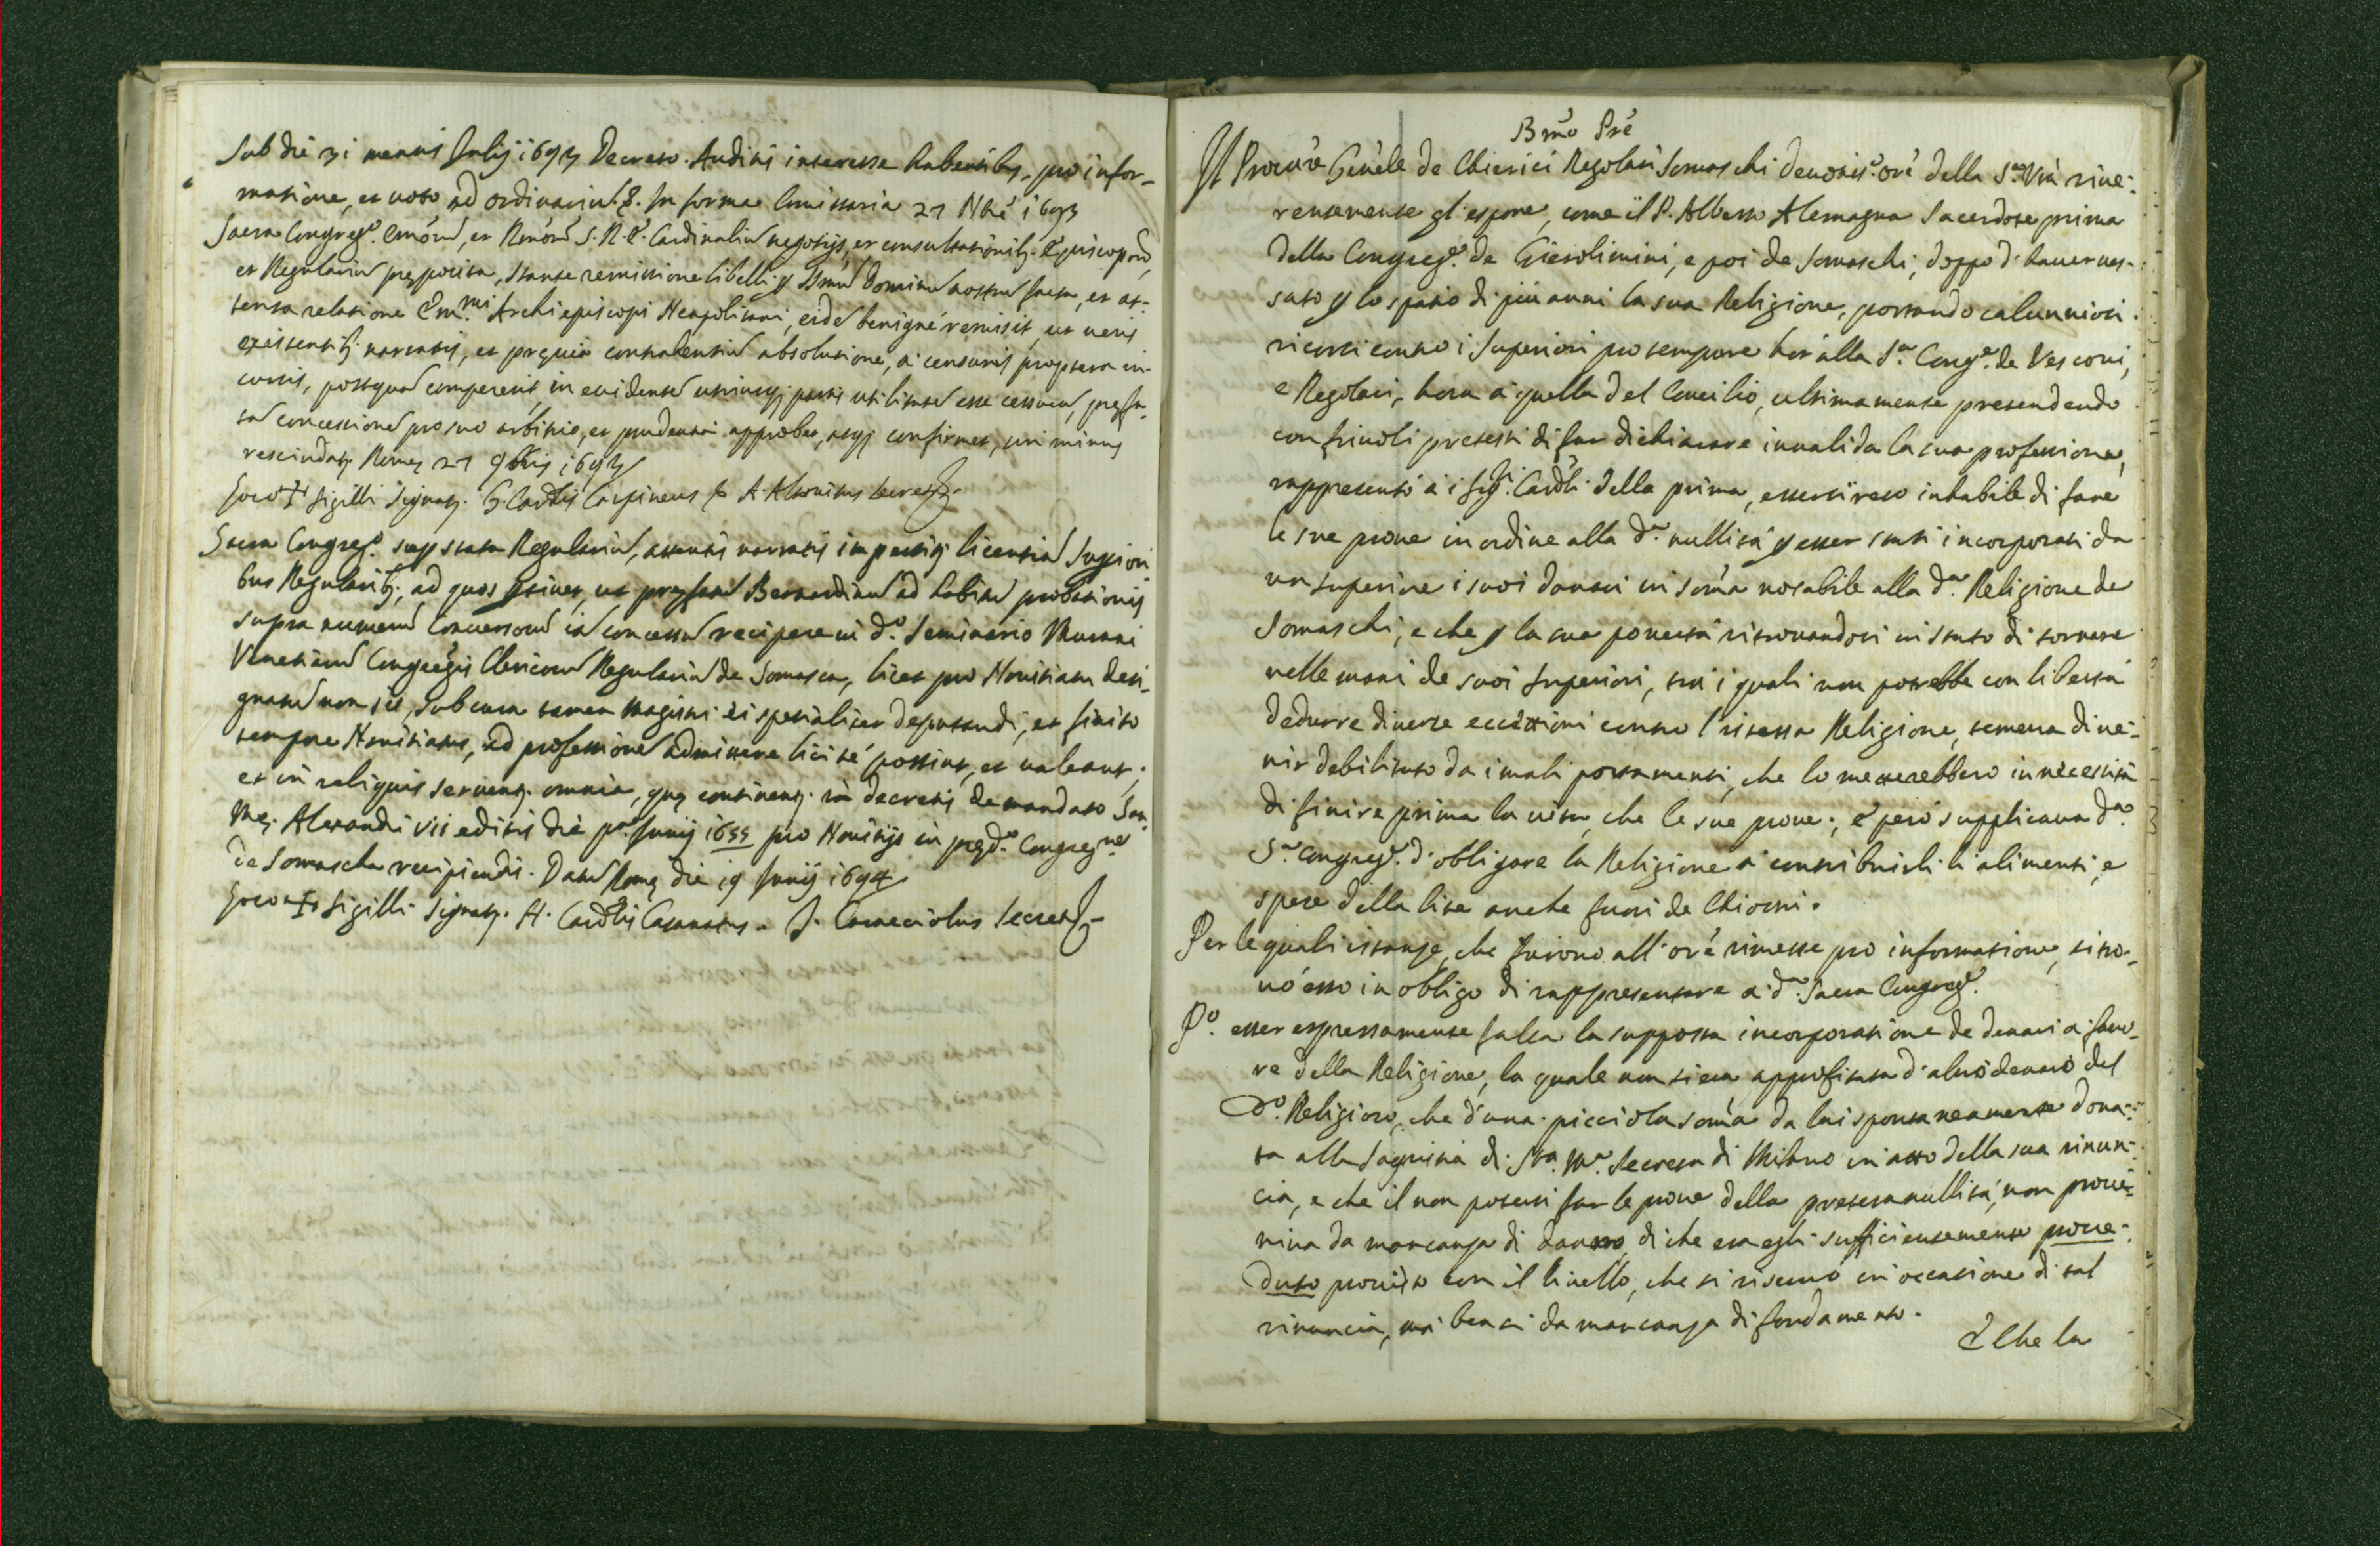 Sub die 31 mensis Julij 1693 Decreto. Auditis interesse habentibus, pro infor-
matione, et voto ad ordinariu. In forma Comissaria 27 Nbre 1693
Sacra Congreg.e Emor̃, et Rmor̃ S. R. E. Cardinaliu negotijs, et consultationib. Episcopor̃,
et Regulariu preposita, stante remissione libelli p Ssmu Dominu nostru facta, et at-
tenta relatione Em.mi Archiepiscopi Neapolitani, eide benigné remisit, ut veris
existentib. narratis, et previa contrahentiu absolutione, a censuris propterea in-
cursis, postqua compererit, in evidente utriusq; partis utilitate esse cessura, prefa-
ta concessione pro suo arbitrio, et prudentia approbet, atq; confirmet, sin minus
rescindat. Rome 27 9bris 1693
Loco + sigilli Signat. G. Cardlis Carpineus A. Altovitus secret.
Sacra Congreg.e sup statu Regulariu, attentis narratis impertit. licentia Superiori
bus Regularib; ad quos ptinet, ut prefatu Bernardinu ad habitu probationis
supra numeru Conversoru ia concessu recipere in d.o Seminario Murani
Venetiaru Congreg̃nis Clericoru Regulariu de Somasca, licet pro Novitiatu desi-
gnatu non sit, sub cura tamen Magistri ei spetialiter deputandi, et finito
tempore Novitiatus, ad professione admittere licité possint, et valeant;
et in reliquis servent. omnia, que continent. in decretis de mandato San.
Me. Alexandri VII editis die p.a Junij 1655 pro Novitijs in pred.a Congreg.ne
de Somascha recipiendis. Datu Rome die 19 Junij 1694
Loco + sigilli Signat. H. Cardlis Casanatus. J. Caracciolus Secret.
Bmo Pre
Il Procur̃e Genẽle de Chierici Regolari Somaschi devotis.o orẽ della S.tà Vrã rive-
rentemente gl'espone, come il P. Alberto Alemagna Sacerdote prima
della Congreg.e de Gierolimini, e poi de Somaschi, doppo d'haver ves-
sato p lo spatio di più anni la sua Religione, portando calunniosi
ricorsi contro i Superiori pro tempore hor alla S.a Cong.e de Vescovi,
e Regolari, hora à quella del Concilio, ultimamente pretendendo
con frivoli pretesti di far dichiarare invalida la sua professione,
rappresentò à i Sig.ri Cardli della prima, essersi reso inhabile di fare
le sue prove in ordine alla d.a nullità p esser stati incorporati da
un superiore i suoi danari in som̃a notabile alla d.a Religione de
Somaschi, e che p la sua povertà ritrovandosi in stato di tornare
nelle mani de suoi Superiori, trà i quali non potrebbe con libertà
dedurre diverse eccettioni contro l'istessa Religione, temeva di ve-
nir debilitato da i mali portamenti, che lo metterebbero in necessità
di finire prima la vita, che le sue prove; e però supplicava d.a
S.a Congreg.e d'obligare la Religione a contribuirli li alimenti, e
spese della lite anche fuori de Chiostri.
Per le quali istanze, che furono all'orẽ rimesse pro informatione, si tro-
vò esso in obligo di rappresentare a d.a Sacra Congreg.e
P.o esser espressamente falsa la supposta incorporatione de denari a favo-
re della Religione, la quale non si era approfittata d'altro denaro del
d.o Religioso, che d'una picciola som̃a da lui spontaneamente dona-
ta alla Sagristia di S.ta M.a Secreta di Milano in atto della sua rinun-
cia, e che il non potersi far le prove della pretesa nullità, non prove-
niva da mancanza di danaro, di che era egli sufficientemente prove-
duto provisto con il livello, che si riservò in occasione di tal
rinuncia, ma bensi da mancanza di fondamento.
E Che la